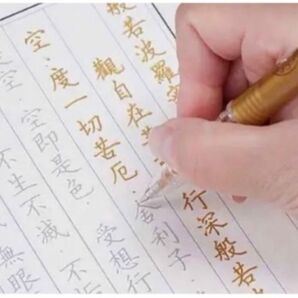 般若波羅蜜
觀自在菩 行深般若
空。度一切苦厄。舍利子
空。空即是色。受想行
不生不滅。不垢
無眼